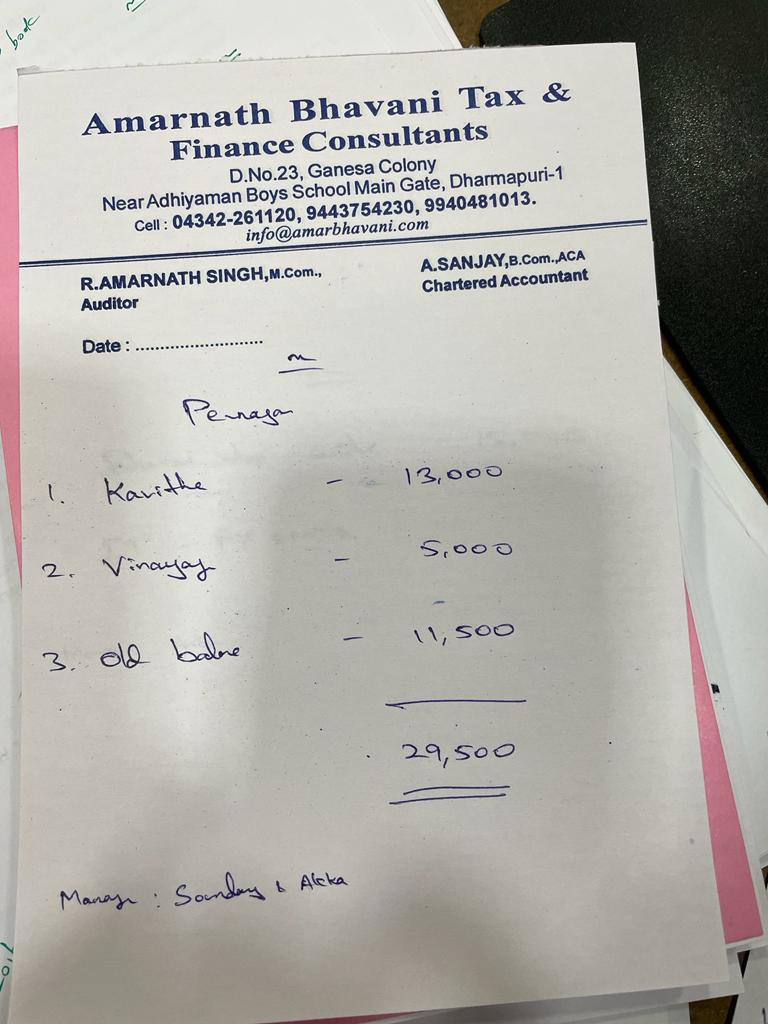 book
Amarnath Bhavani Tax &
Finance Consultants
D.No.23, Ganesa Colony
Near Adhiyaman Boys School Main Gate, Dharmapuri-1
Cell : 04342-261120, 9443754230, 9940481013.
info@amarbhavani.com
R.AMARNATH SINGH,M.Com.,
Auditor
A.SANJAY,B.Com.,ACA
Chartered Accountant
Date : ..........................
1. Kavitha - 13,000
2. Vinayag - 5,000
3. old - 11,500
29,500
: &